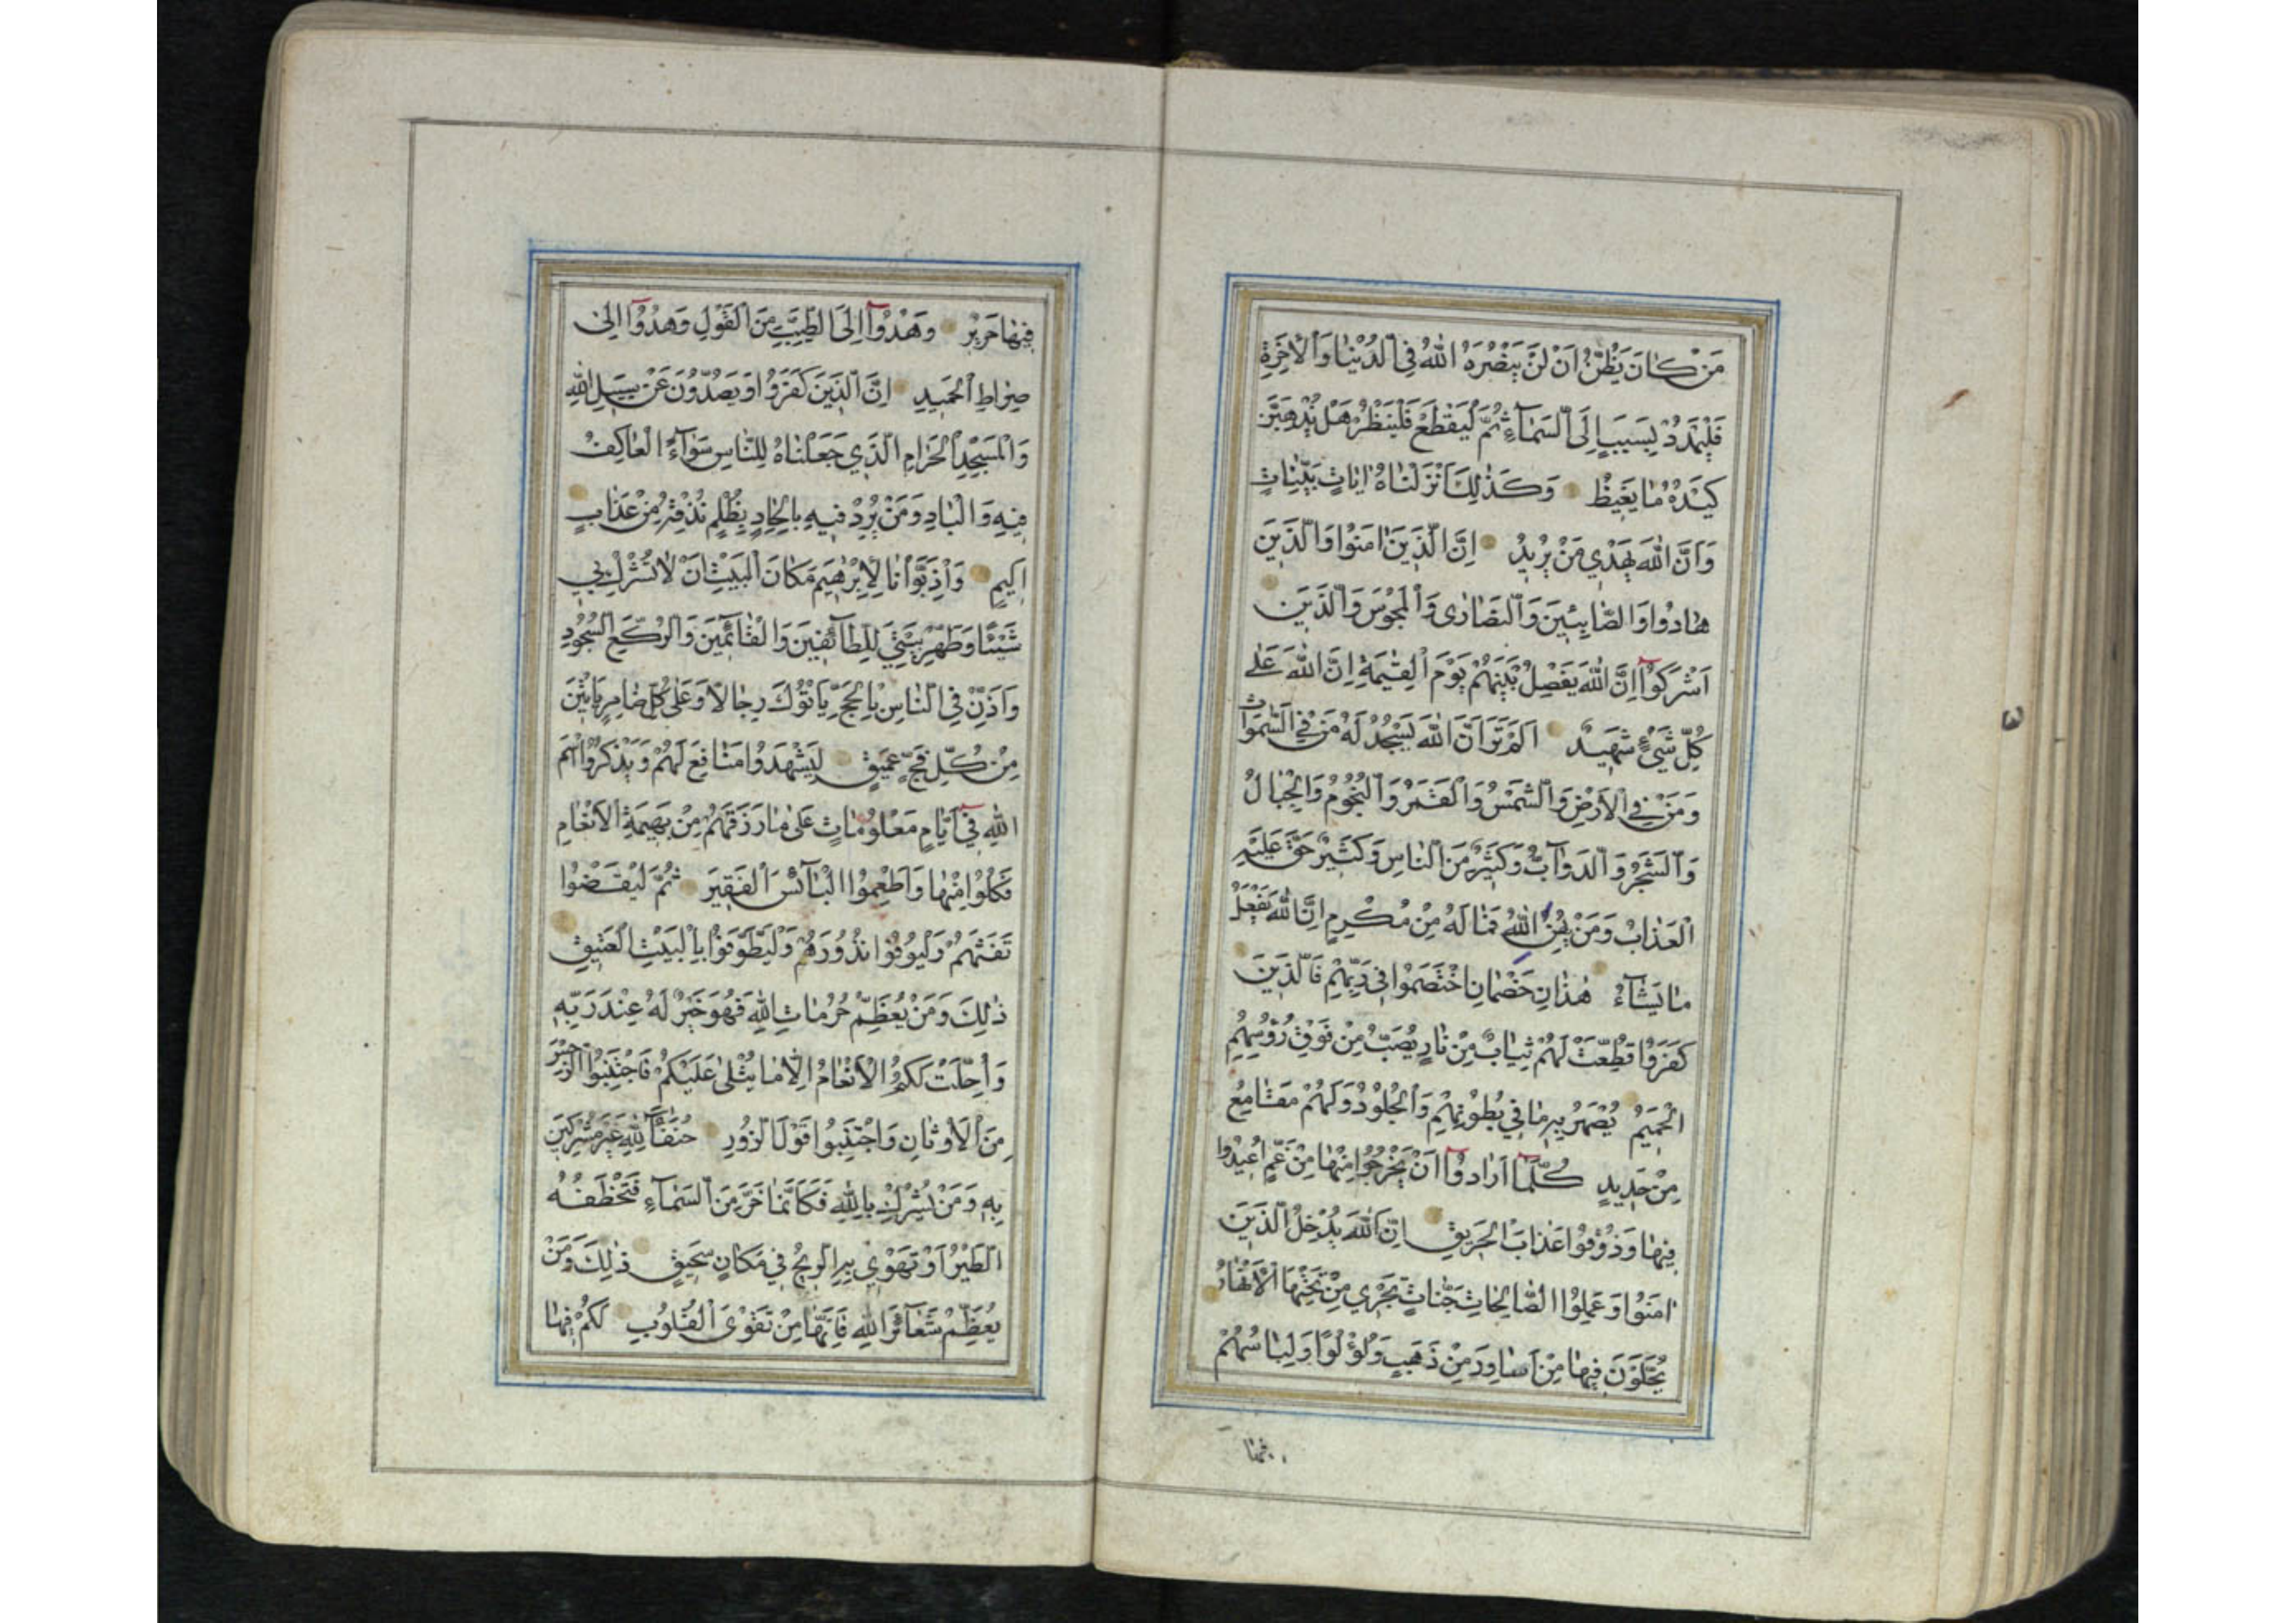 مَنْ كَانَ يَظُنُّ اَنْ لَنْ يَنْصُرَهُ اللّٰهُ فِي الدُّنْيَا وَالْاٰخِرَةِ
فَلْيَمْدُدْ بِسَبَبٍ اِلَى السَّمَآءِ ثُمَّ لْيَقْطَعْ فَلْيَنْظُرْ هَلْ يُذْهِبَنَّ
كَيْدُهُ مَا يَغِيظُ وَكَذٰلِكَ اَنْزَلْنَاهُ اٰيَاتٍ بَيِّنَاتٍ
وَاَنَّ اللّٰهَ يَهْدِي مَنْ يُرِيدُ اِنَّ الَّذِينَ اٰمَنُوا وَالَّذِينَ
هَادُوا وَالصَّابِئِينَ وَالنَّصَارٰى وَالْمَجُوسَ وَالَّذِينَ
اَشْرَكُوٓا اِنَّ اللّٰهَ يَفْصِلُ بَيْنَهُمْ يَوْمَ الْقِيٰمَةِ اِنَّ اللّٰهَ عَلٰى
كُلِّ شَيْءٍ شَهِيدٌ اَلَمْ تَرَ اَنَّ اللّٰهَ يَسْجُدُ لَهُ مَنْ فِي السَّمٰوَاتِ
وَمَنْ فِي الْاَرْضِ وَالشَّمْسُ وَالْقَمَرُ وَالنُّجُومُ وَالْجِبَالُ
وَالشَّجَرُ وَالدَّوَآبُّ وَكَثِيرٌ مِنَ النَّاسِ وَكَثِيرٌ حَقَّ عَلَيْهِ
الْعَذَابُ وَمَنْ يُهِنِ اللّٰهُ فَمَا لَهُ مِنْ مُكْرِمٍ اِنَّ اللّٰهَ يَفْعَلُ
مَا يَشَآءُ هٰذَانِ خَصْمَانِ اخْتَصَمُوا فِي رَبِّهِمْ فَالَّذِينَ
كَفَرُوا قُطِّعَتْ لَهُمْ ثِيَابٌ مِنْ نَارٍ يُصَبُّ مِنْ فَوْقِ رُؤُسِهِمُ
الْحَمِيمُ يُصْهَرُ بِهِ مَا فِي بُطُونِهِمْ وَالْجُلُودُ وَلَهُمْ مَقَامِعُ
مِنْ حَدِيدٍ كُلَّمَآ اَرَادُوٓا اَنْ يَخْرُجُوا مِنْهَا مِنْ غَمٍّ اُعِيدُوا
فِيهَا وَذُوقُوا عَذَابَ الْحَرِيقِ اِنَّ اللّٰهَ يُدْخِلُ الَّذِينَ
اٰمَنُوا وَعَمِلُوا الصَّالِحَاتِ جَنَّاتٍ تَجْرِي مِنْ تَحْتِهَا الْاَنْهَارُ
يُحَلَّوْنَ فِيهَا مِنْ اَسَاوِرَ مِنْ ذَهَبٍ وَلُؤْلُؤًا وَلِبَاسُهُمْ
فيها
فِيهَا حَرِيرٌ وَهُدُوٓا اِلَى الطَّيِّبِ مِنَ الْقَوْلِ وَهُدُوٓا اِلٰى
صِرَاطِ الْحَمِيدِ اِنَّ الَّذِينَ كَفَرُوا وَيَصُدُّونَ عَنْ سَبِيلِ اللّٰهِ
وَالْمَسْجِدِ الْحَرَامِ الَّذِي جَعَلْنَاهُ لِلنَّاسِ سَوَآءً الْعَاكِفُ
فِيهِ وَالْبَادِ وَمَنْ يُرِدْ فِيهِ بِاِلْحَادٍ بِظُلْمٍ نُذِقْهُ مِنْ عَذَابٍ
اَلِيمٍ وَاِذْ بَوَّأْنَا لِاِبْرٰهِيمَ مَكَانَ الْبَيْتِ اَنْ لَا تُشْرِكْ بِي
شَيْئًا وَطَهِّرْ بَيْتِيَ لِلطَّآئِفِينَ وَالْقَآئِمِينَ وَالرُّكَّعِ السُّجُودِ
وَاَذِّنْ فِي النَّاسِ بِالْحَجِّ يَأْتُوكَ رِجَالًا وَعَلٰى كُلِّ ضَامِرٍ يَأْتِينَ
مِنْ كُلِّ فَجٍّ عَمِيقٍ لِيَشْهَدُوا مَنَافِعَ لَهُمْ وَيَذْكُرُوا اسْمَ
اللّٰهِ فِيٓ اَيَّامٍ مَعْلُومَاتٍ عَلٰى مَا رَزَقَهُمْ مِنْ بَهِيمَةِ الْاَنْعَامِ
فَكُلُوا مِنْهَا وَاَطْعِمُوا الْبَآئِسَ الْفَقِيرَ ثُمَّ لْيَقْضُوا
تَفَثَهُمْ وَلْيُوفُوا نُذُورَهُمْ وَلْيَطَّوَّفُوا بِالْبَيْتِ الْعَتِيقِ
ذٰلِكَ وَمَنْ يُعَظِّمْ حُرُمَاتِ اللّٰهِ فَهُوَ خَيْرٌ لَهُ عِنْدَ رَبِّهِ
وَاُحِلَّتْ لَكُمُ الْاَنْعَامُ اِلَّا مَا يُتْلٰى عَلَيْكُمْ فَاجْتَنِبُوا الرِّجْسَ
مِنَ الْاَوْثَانِ وَاجْتَنِبُوا قَوْلَ الزُّورِ حُنَفَآءَ لِلّٰهِ غَيْرَ مُشْرِكِينَ
بِهِ وَمَنْ يُشْرِكْ بِاللّٰهِ فَكَاَنَّمَا خَرَّ مِنَ السَّمَآءِ فَتَخْطَفُهُ
الطَّيْرُ اَوْ تَهْوِي بِهِ الرِّيحُ فِي مَكَانٍ سَحِيقٍ ذٰلِكَ وَمَنْ
يُعَظِّمْ شَعَآئِرَ اللّٰهِ فَاِنَّهَا مِنْ تَقْوَى الْقُلُوبِ لَكُمْ فِيهَا